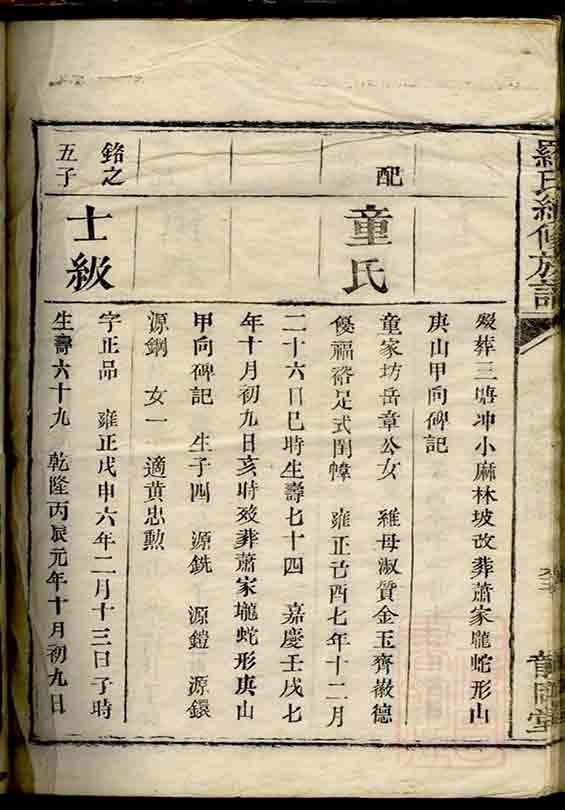 羅氏續修族譜
歿葬三塘冲小麻林坡改葬蕭家壠蛇形山
庚山甲向碑記
配
童氏
童家坊岳章公女 維母淑質金玉齊徽德
優福裕足式閨幃 雍正己酉七年十二月
二十六日巳時生壽七十四 嘉慶壬戌七
年十月初九日亥時歿葬蕭家壠蛇形庚山
甲向碑記 生子四 源銑 源鎧 源鐶
源鋼 女一 適黃忠勲
銘之
五子
士級
字正品 雍正戊申六年二月十三日子時
生壽六十九 乾隆丙辰元年十月初九日